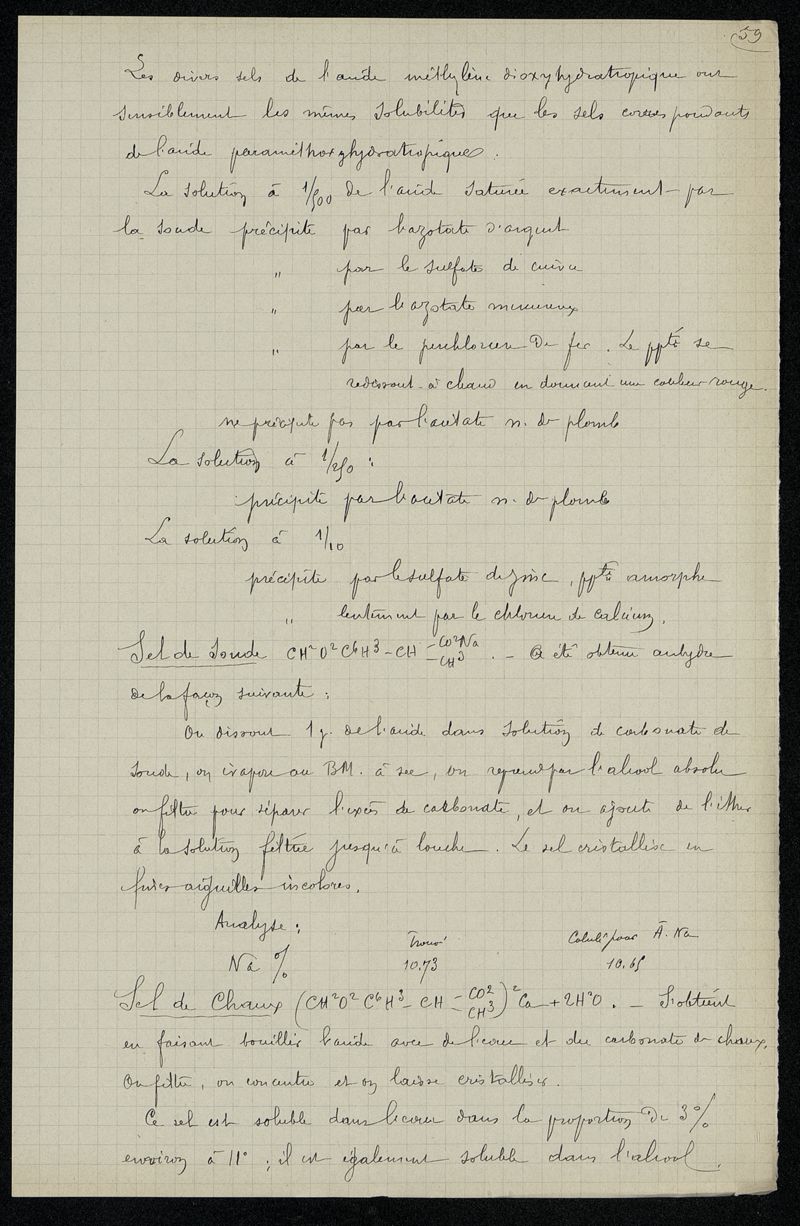 59
Les divers sels de l'acide méthylène dioxyhydratropique ont
sensiblement les mêmes solubilités que les sels correspondants
de l'acide paraméthoxyhydratropique.
La solution à 1/500 de l'acide saturée exactement par
la soude précipite par l'azotate d'argent
" par le sulfate de cuivre
" par l'azotate mercureux
" par le perchlorure de fer. Le ppté se
redissout à chaud en donnant une couleur rouge.
ne précipite pas par l'acétate n. de plomb
La solution à 1/250 :
précipite par l'acétate n. de plomb
La solution à 1/10
précipite par le sulfate de zinc, ppté amorphe
" lentement par le chlorure de calcium.
Sel de soude CH²O²C⁶H³-CH=CO²Na -CH³. — a été obtenu anhydre
de la façon suivante :
On dissout 1 g. de l'acide dans solution de carbonate de
soude, on évapore au BM. à sec, on reprend par l'alcool absolu
on filtre pour séparer l'excès de carbonate, et on ajoute de l'éther
à la solution filtrée jusqu'à louche. Le sel cristallise en
fines aiguilles incolores.
Analyse : Trouvé Calculé pour Ā. Na
Na % 10.73 10.65
Sel de Chaux (CH²O²C⁶H³-CH=CO² -CH³)²Ca + 2H²O. — S'obtient
en faisant bouillir l'acide avec de l'eau et du carbonate de chaux.
On filtre, on concentre et on laisse cristalliser.
Ce sel est soluble dans l'eau dans la proportion de 3%
environ à 11° ; il est également soluble dans l'alcool.